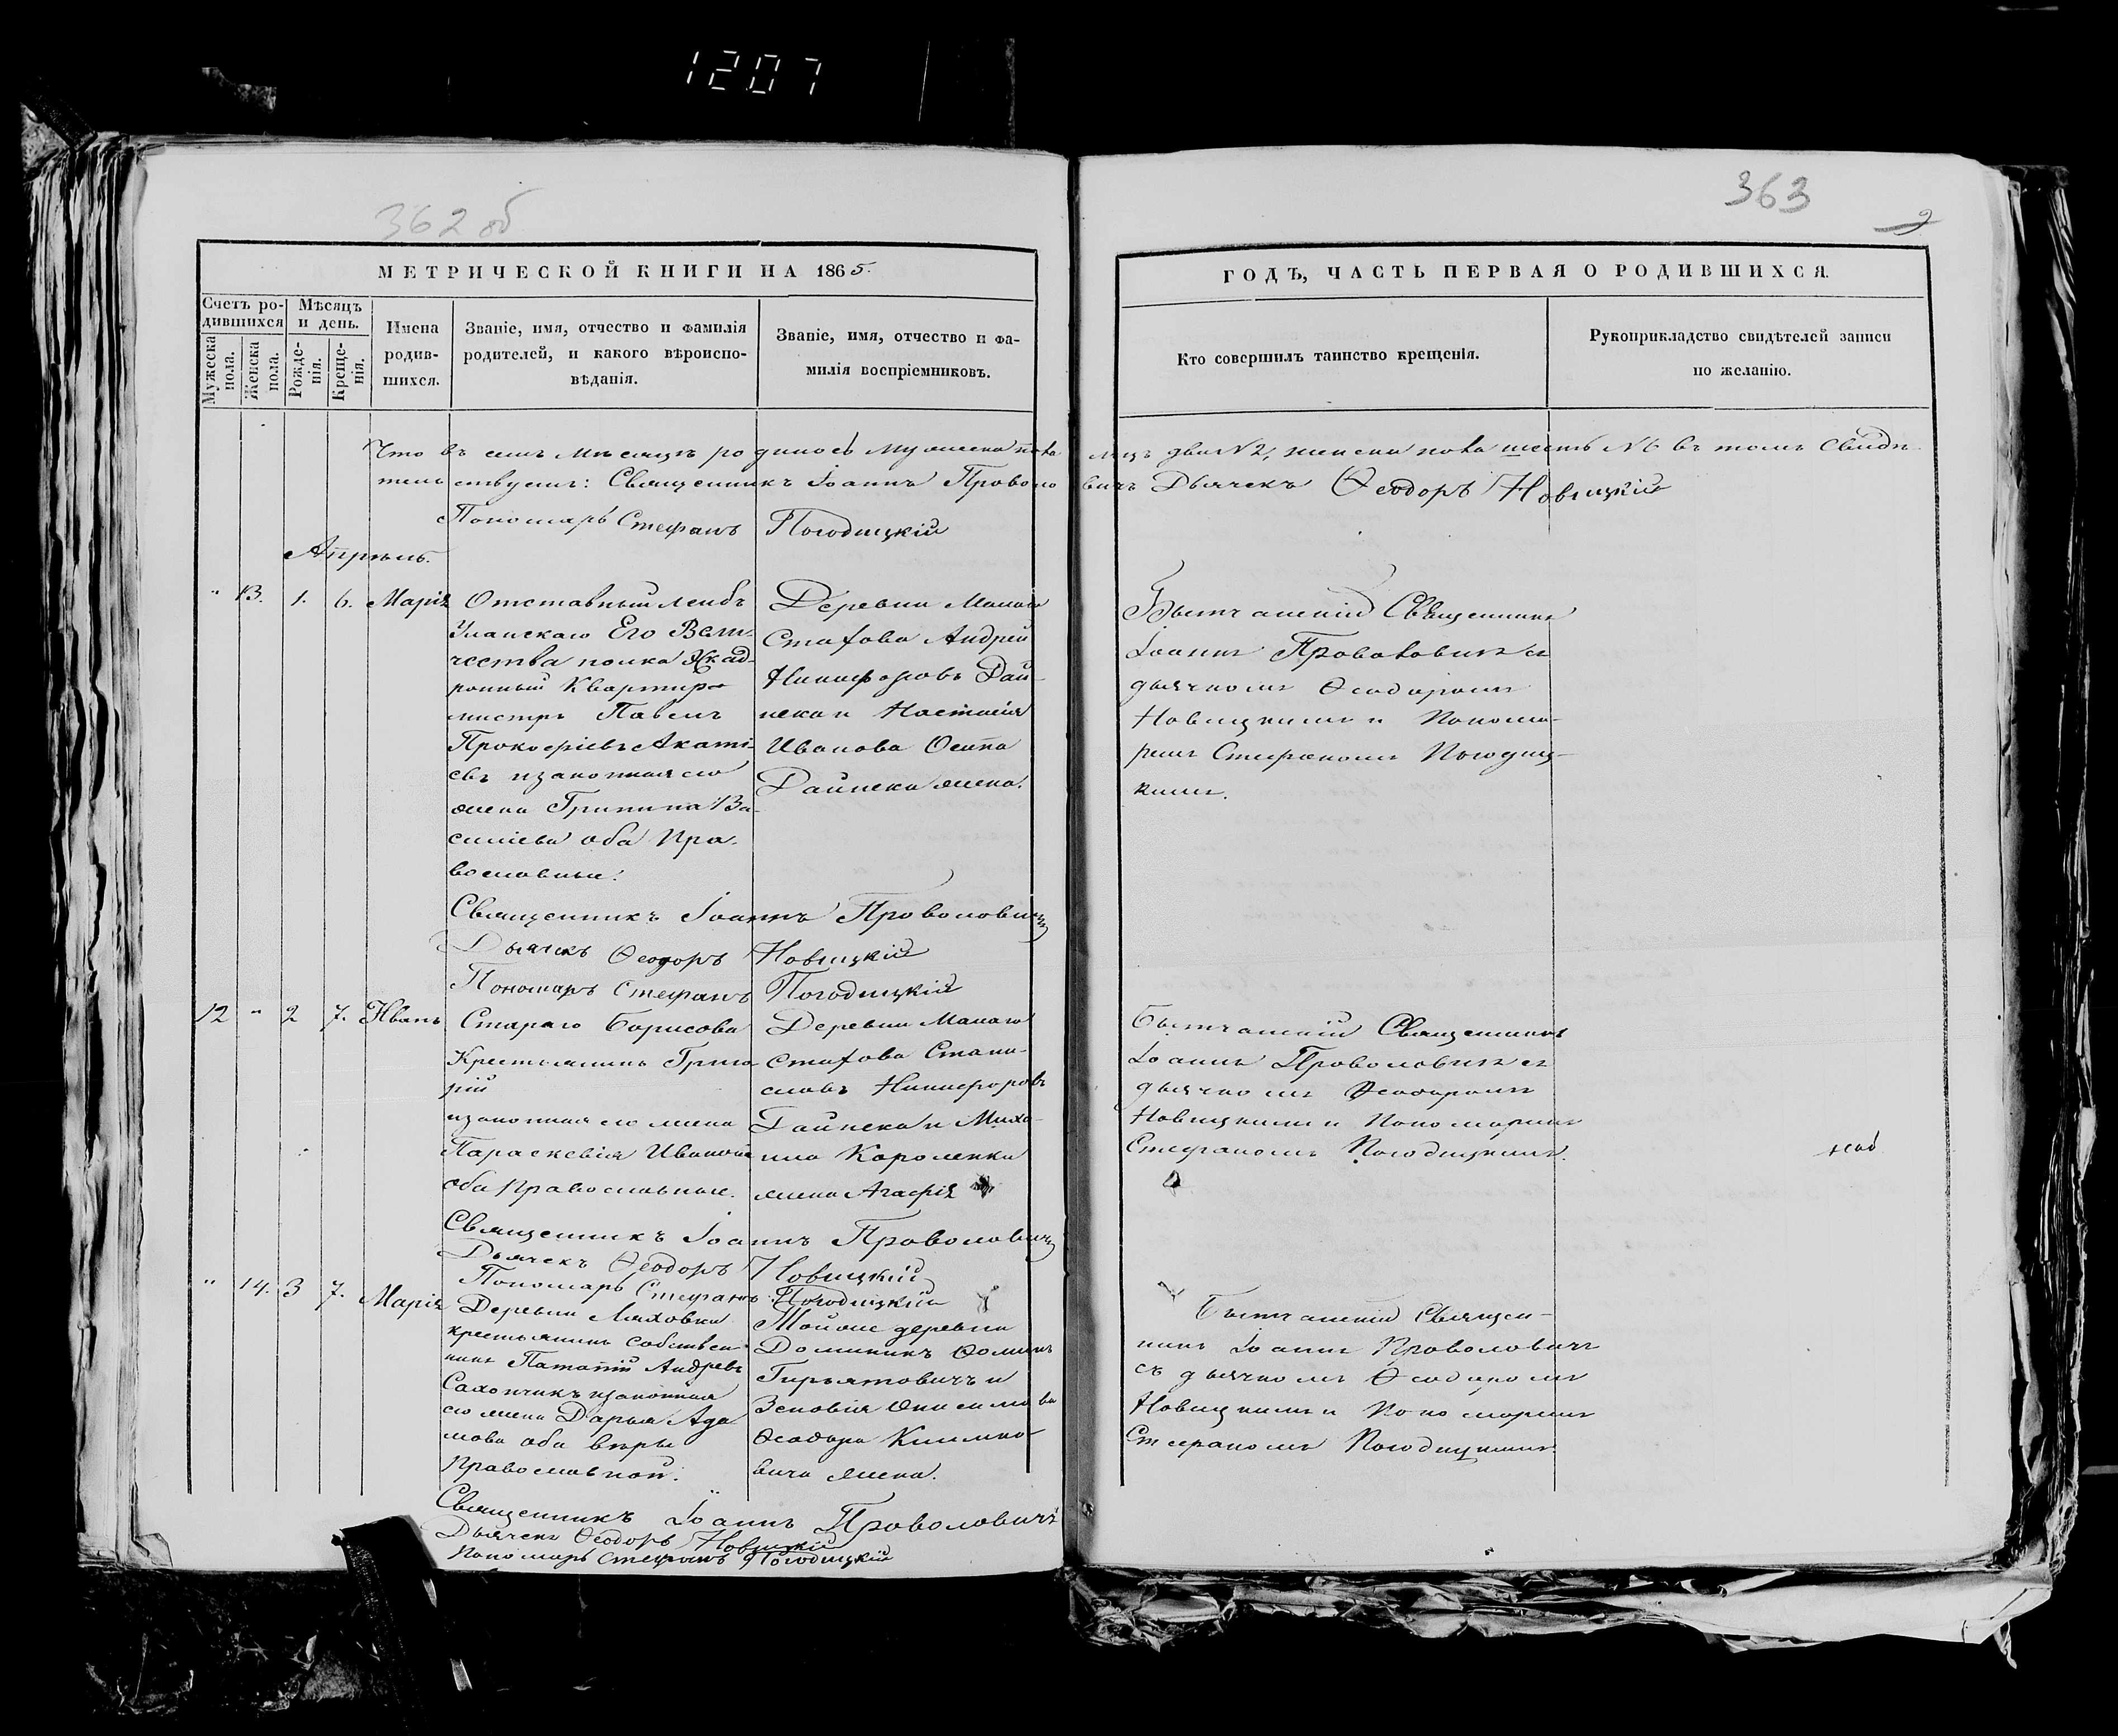 1207
362 об
363
9
МЕТРИЧЕСКОЙ КНИГИ НА 1865.
ГОДЪ, ЧАСТЬ ПЕРВАЯ О РОДИВШИХСЯ.
Счетъ ро-
дившихся
Мужеска пола.
Женска пола.
Мѣсяцъ
и день.
Рожде-
нія.
Креще-
нія.
Имена
родив-
шихся.
Званіе, имя, отчество и фамилія
родителей, и какого вѣроиспо-
вѣданія.
Званіе, имя, отчество и фа-
милія воспріемниковъ.
Кто совершилъ таинство крещенія.
Рукоприкладство свидѣтелей записи
по желанію.
Что въ семъ мѣсяцѣ родилось мужеска пола лицъ два №2, женска пола шесть №6 въ томъ свидѣ-
тельствуемъ: Священникъ Іоаннъ Проволовичъ Дьячекъ Ѳеодоръ Новицкій
Пономарь Стефанъ Погодицкій
Апрѣль.
" 13. 1. 6. Марія
Отставный лейбъ
Уланскаго Его Вели-
чества полка Эскад-
ронный Квартир-
мистръ Павелъ
Прокофіевъ
и законная его
жена Грипина Ва-
силіева оба пра-
вославные.
Деревни Малаго
Стахова Андрей
Никифоровъ Дай-
нека и Настасія
Иванова Осипа
Дайнеки жена.
Священникъ
Іоаннъ Проволовичъ съ
дьячкомъ Ѳеодоромъ
Новицкимъ и Понома-
ремъ Стефаномъ Погодиц-
кимъ.
Священникъ Іоаннъ Проволовичъ
Дьячекъ Ѳеодоръ Новицкій
Пономарь Стефанъ Погодицкій
12 " 2 7. Иванъ
Стараго Борисова
Крестьянинъ Григо-
рій
и законная его жена
Параскевія Иванова
оба православные.
Деревни Малаго
Стахова Стани-
славъ Никифоровъ
Дайнека и Миха-
ила Короленки
жена Агафія
Священникъ
Іоаннъ Проволовичъ съ
дьячкомъ Ѳеодоромъ
Новицкимъ и Пономаремъ
Стефаномъ Погодицкимъ.
Священникъ Іоаннъ Проволовичъ
Дьячекъ Ѳеодоръ Новицкій
Пономарь Стефанъ Погодицкій
" 14. 3 7. Марія
Деревни Ляховки
крестьянинъ собствен-
никъ Андреевъ
и законная
его жена Дарья Ада-
мова оба вѣры
православной.
Тойже деревни
Доминикъ Ѳоминъ
и
Зеновія Онисимова
Ѳеодора Климко-
вича жена.
Священ-
никъ Іоаннъ Проволовичъ
съ дьячкомъ Ѳеодоромъ
Новицкимъ и Пономаремъ
Стефаномъ Погодицкимъ.
Священникъ Іоаннъ Проволовичъ
Дьячекъ Ѳеодоръ Новицкій
Пономарь Стефанъ Погодицкій